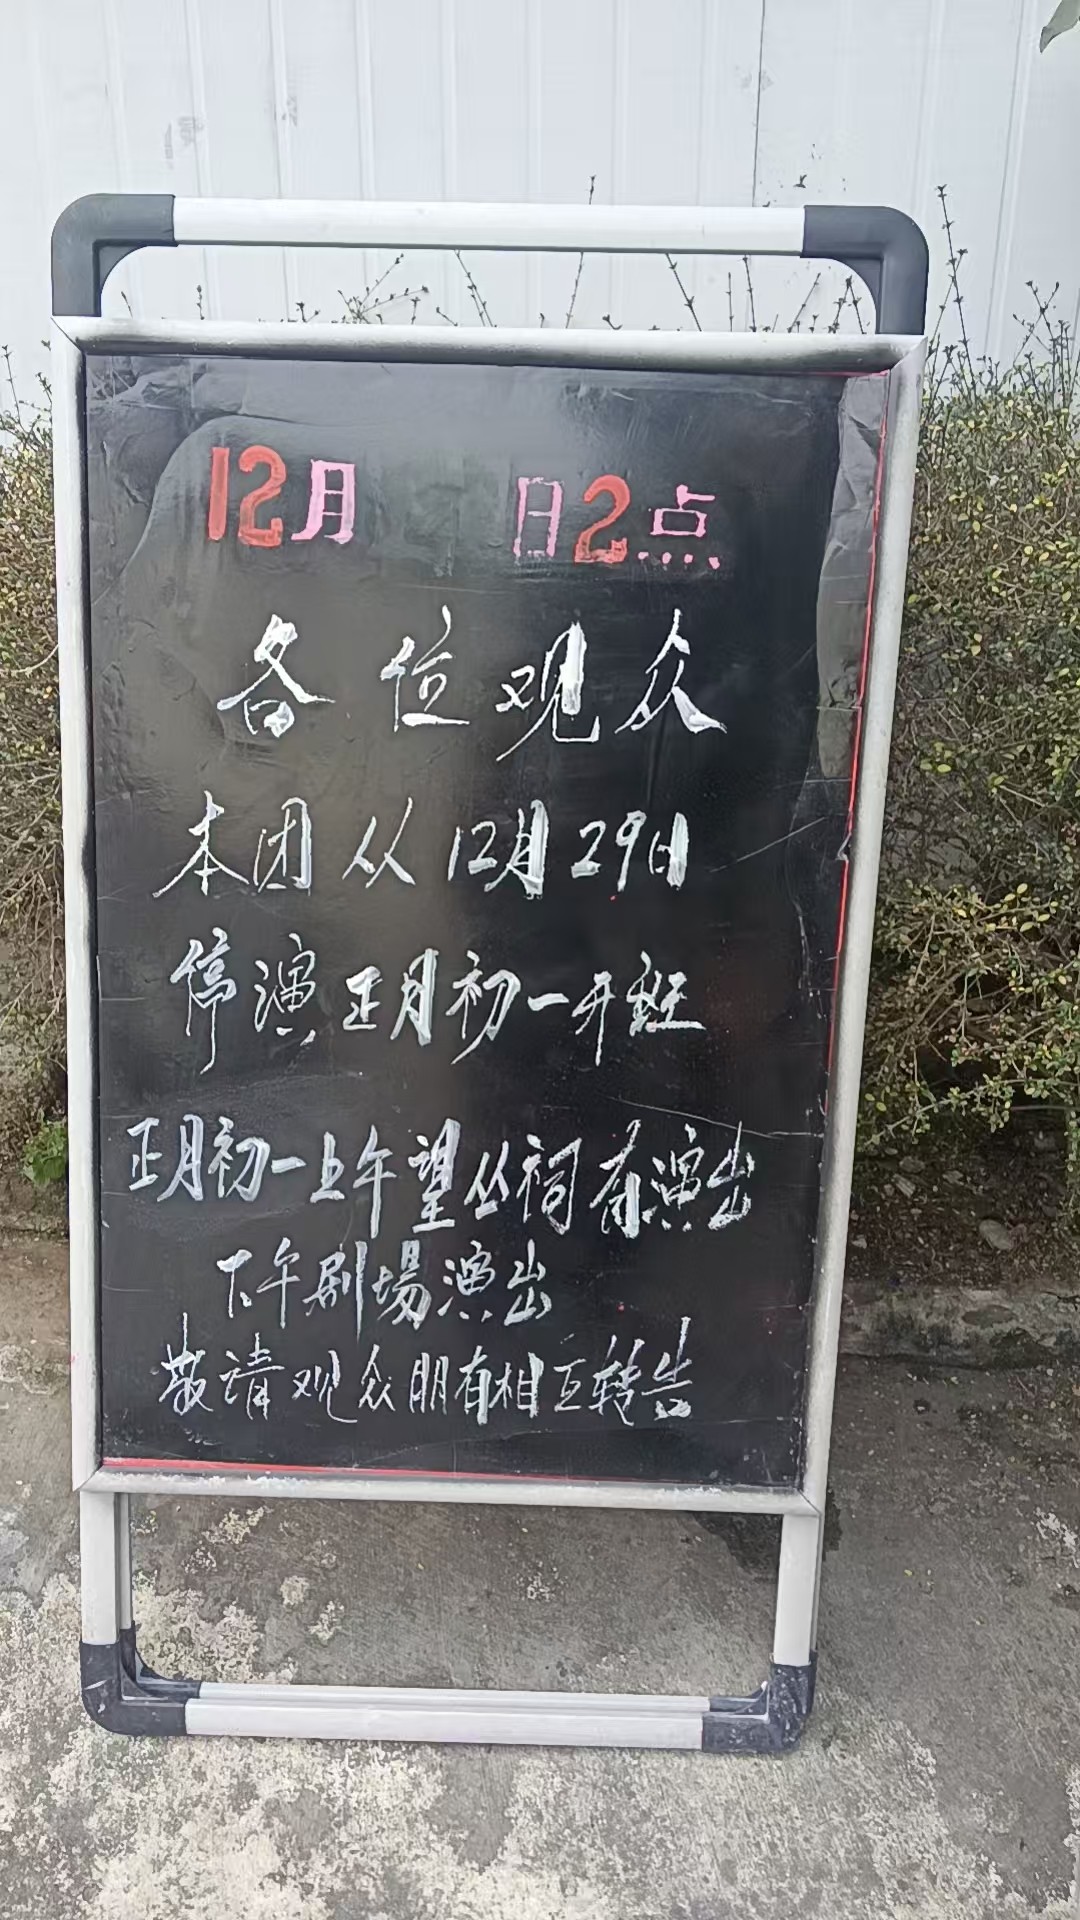 12月 日2点
各位观众
本团从12月29日
停演正月初一开班
正月初一上午望丛祠有演出
下午剧場演出
敬请观众朋有相互转告